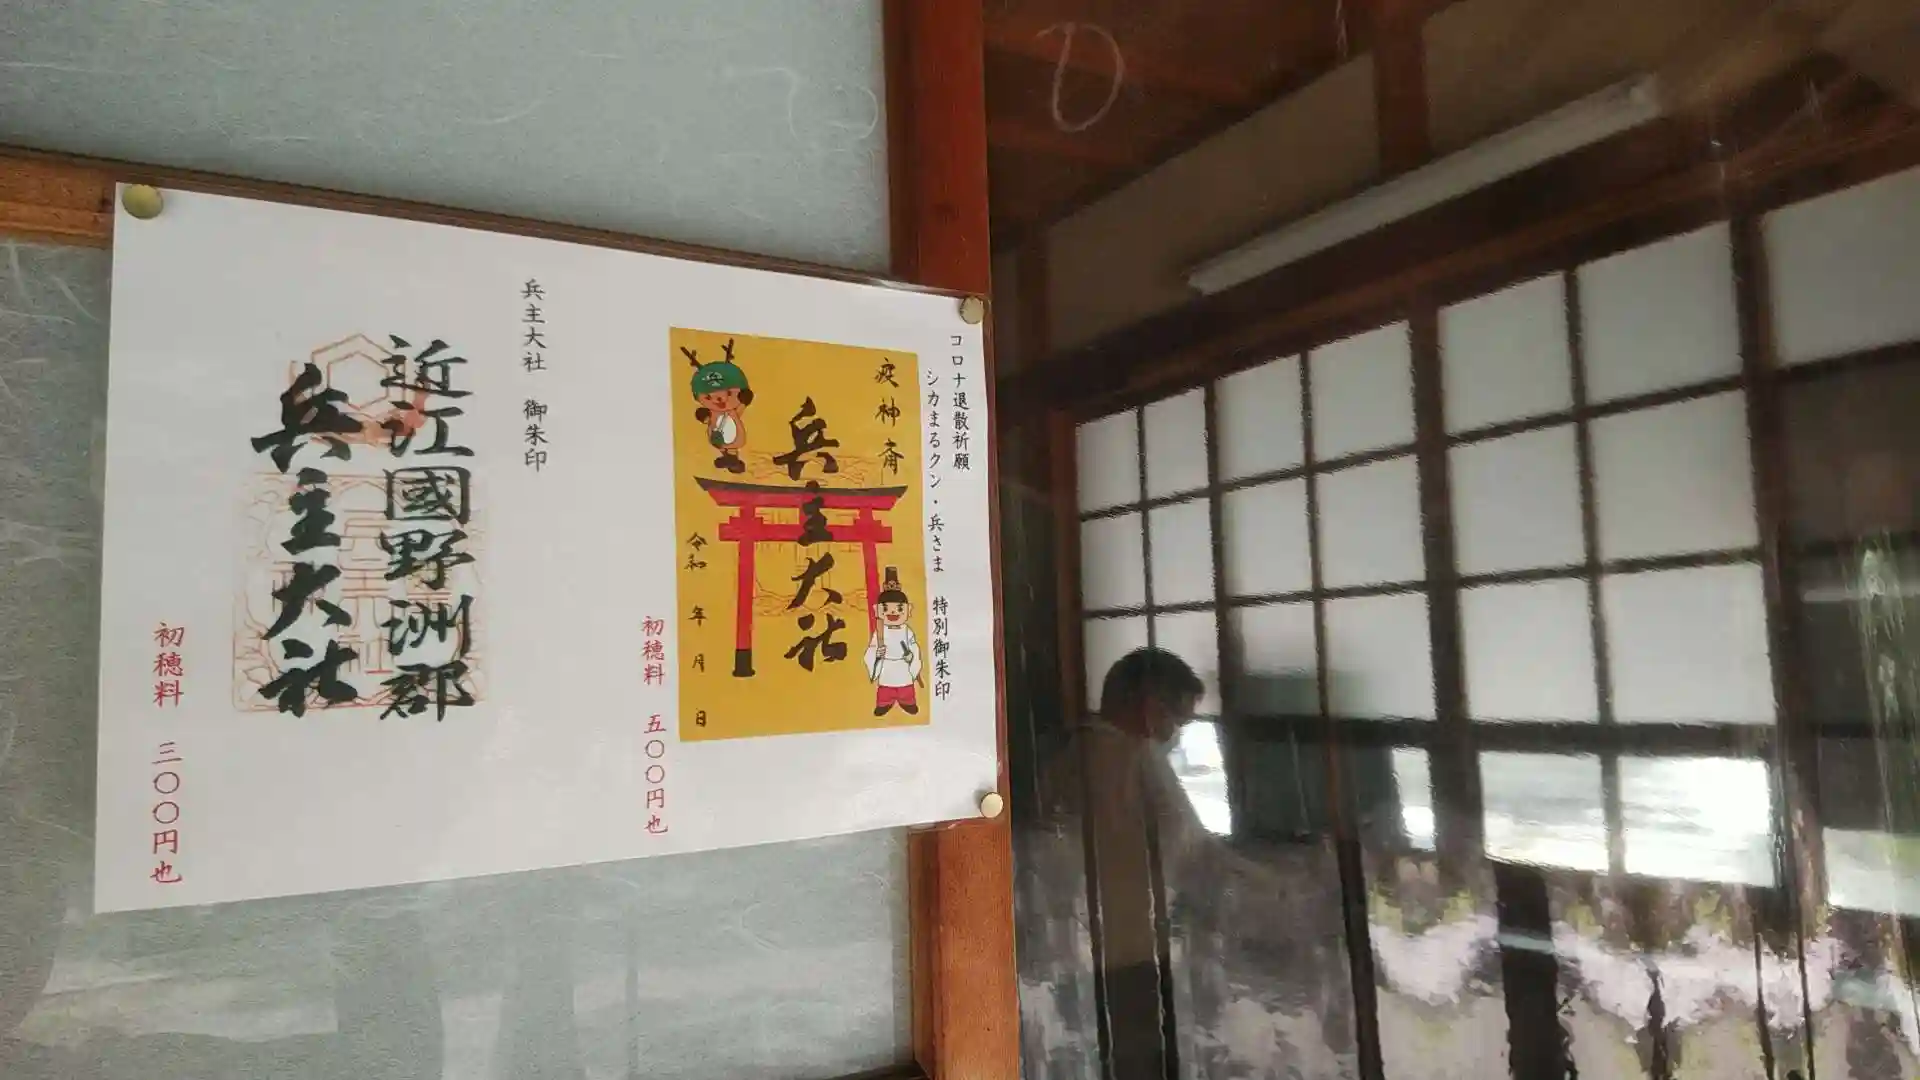 コロナ退散祈願
シカまるクン・兵さま 特別御朱印
疫神斎
兵主大社
令和 年 月 日
兵
初穂料 五〇〇円也
兵主大社 御朱印
近江國野洲郡
兵主大社
初穂料 三〇〇円也